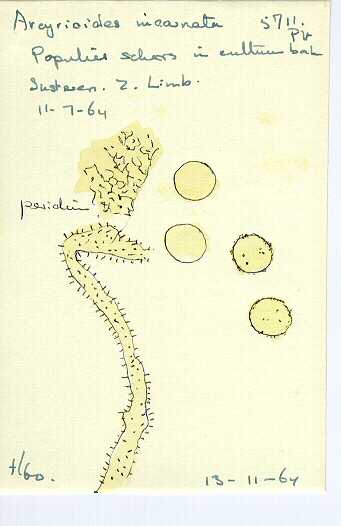 Arcyrioides incarnata 5711.
PV
Populier schors in cultuur bak
Susteren. Z. Limb.
11-7-64
peridium
t/60.
13-11-64